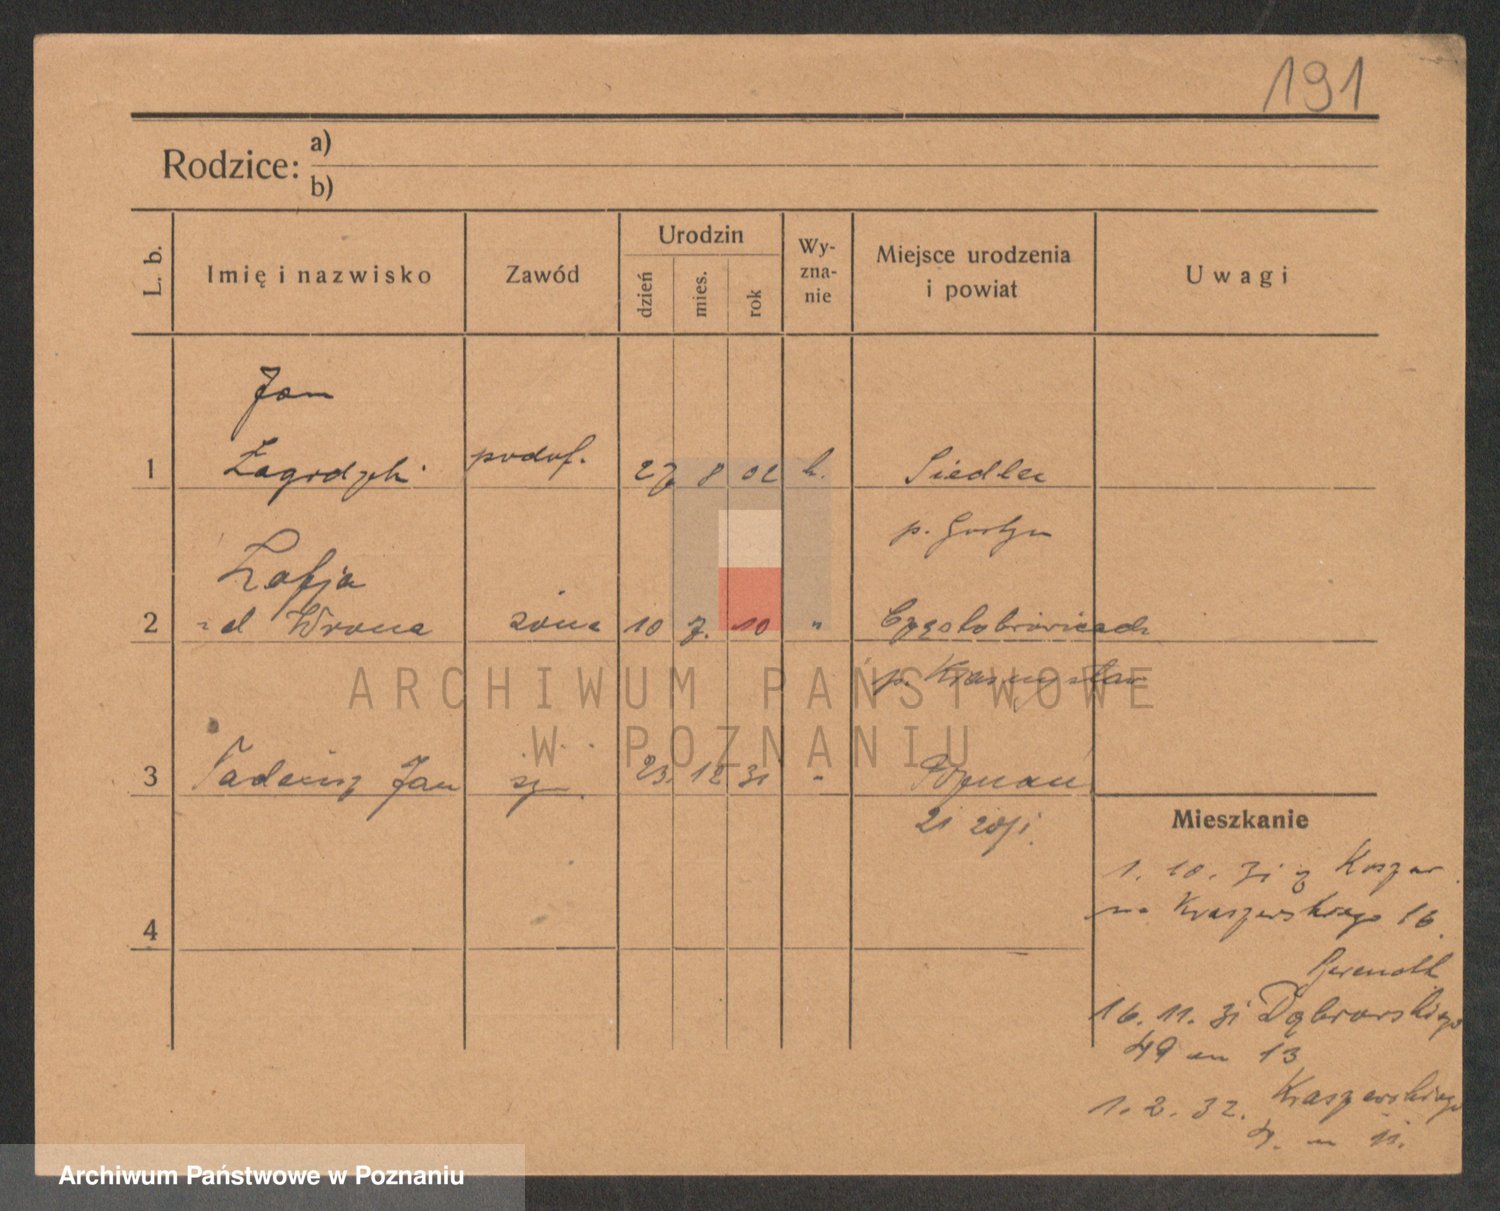 191
Rodzice:
a)
b)
L. b.
Imię i nazwisko
Zawód
Urodzin
dzień
mies.
rok
Wy-
zna-
nie
Miejsce urodzenia
i powiat
Uwagi
Jan
1 Zagrodzki podof. 27 8 02 k. Siedlec
p. Gostyn
Zofja
2 z d Wrona żona 10 7. 10 " Częstoborowicach
p. Krasnystaw
3 Tadeusz Jan syn 23. 12 31 " Poznań
21
4
Mieszkanie
1. 10. 31 z Koszar
na Kraszewskiego 16.
16. 11. 31 Dąbrowskiego
49 m 13
1. 2. 32. Kraszewskiego
m 11.
ARCHIWUM PAŃSTWOWE
W POZNANIU
Archiwum Państwowe w Poznaniu